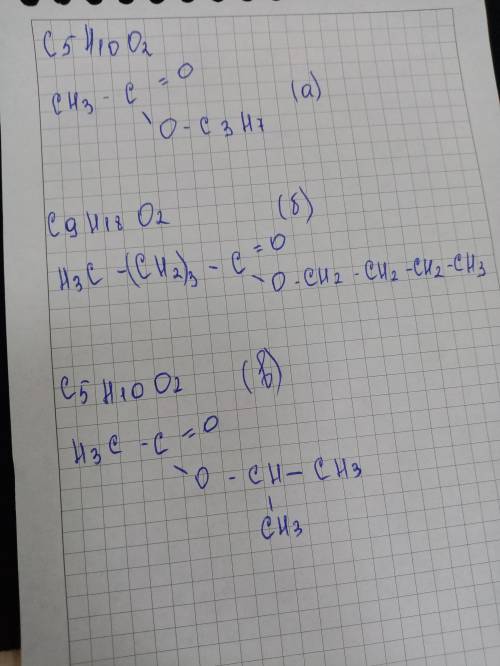 C5H10O2
CH3 - C = O
\ O - C3H7 (а)
C9H18O2 (б)
H3C -(CH2)3 - C = O
\ O - CH2 - CH2 - CH2 - CH3
C5H10O2 (в)
H3C - C = O
\ O - CH - CH3
|
CH3